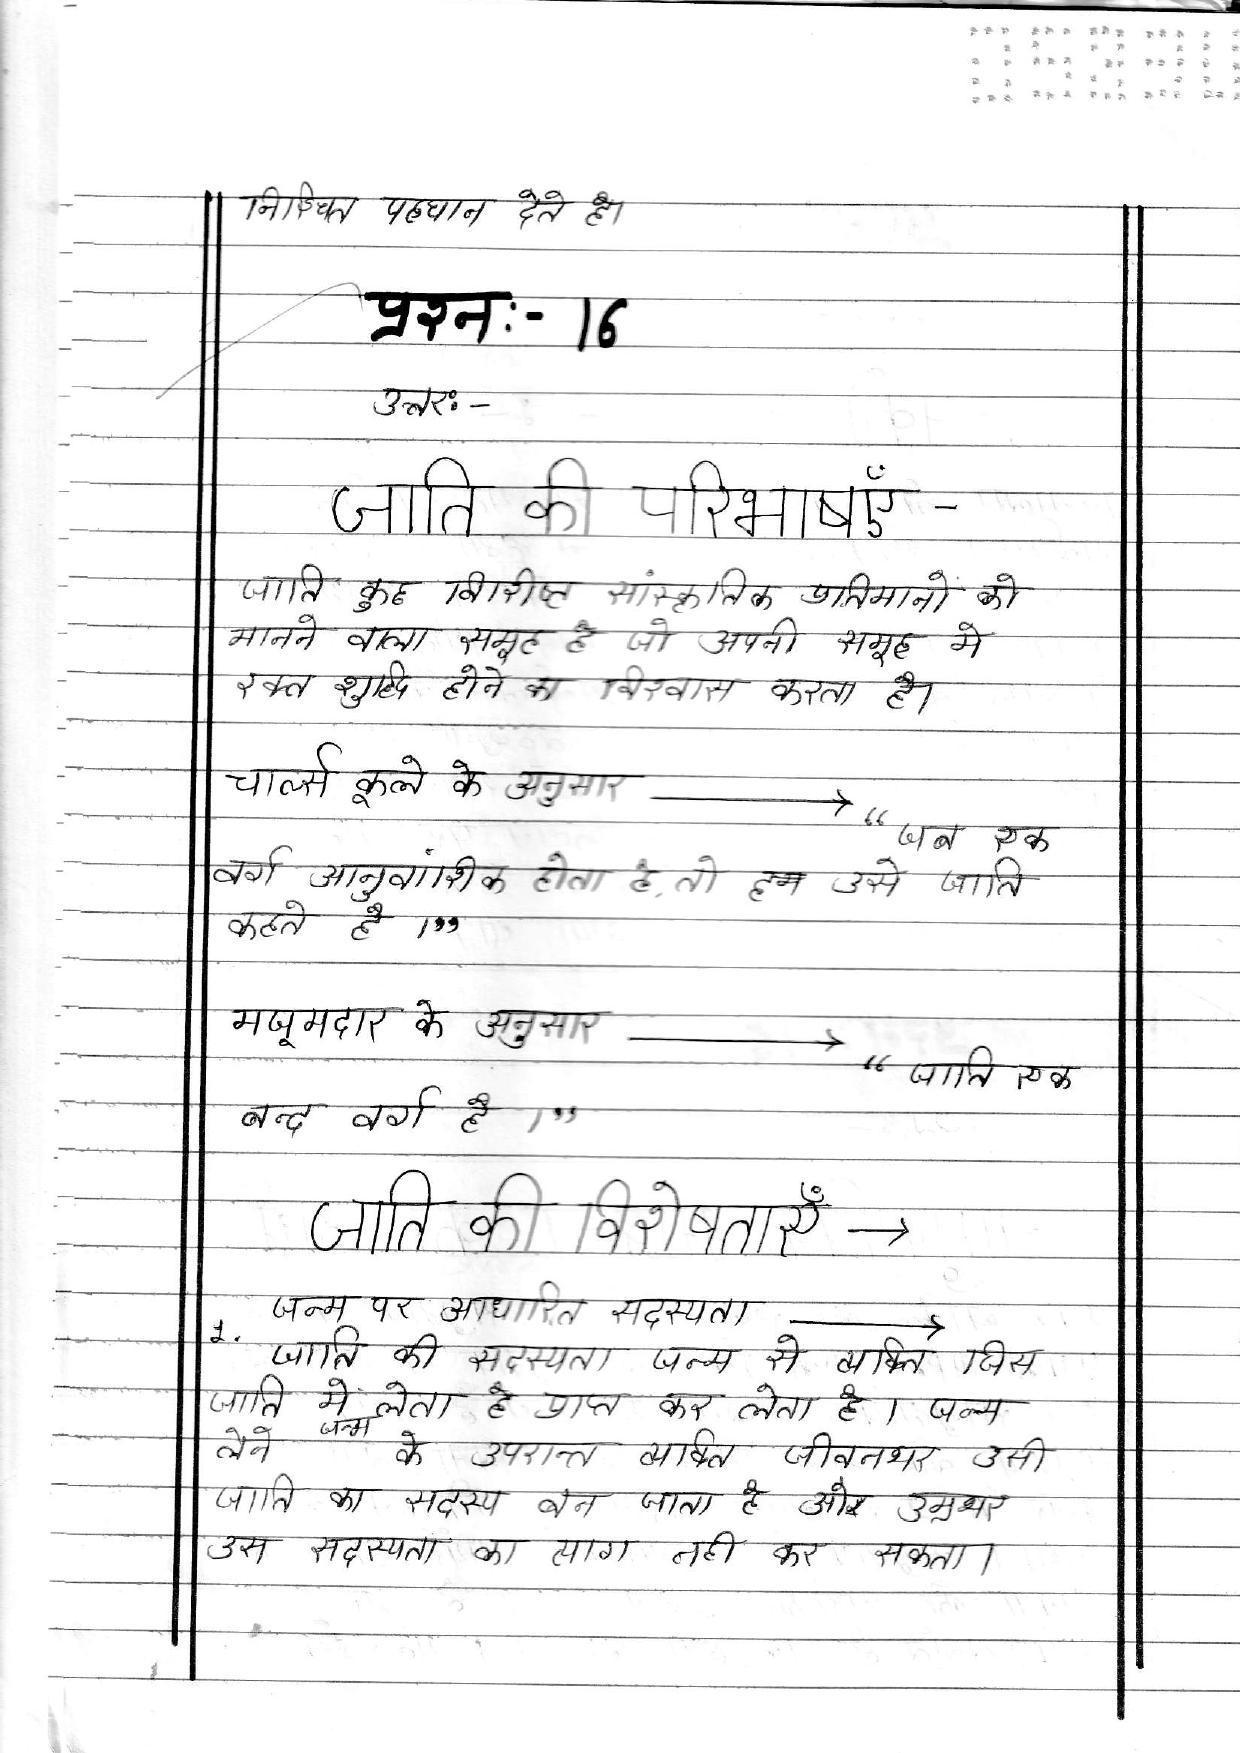 निश्चित पहचान देते है।
प्रश्न:- 16
उत्तर:-
जाति की परिभाषाएँ-
जाति कुछ विशिष्ट सांस्कृतिक प्रतिमानों को
मानने वाला समूह है जो अपनी समूह मे
रक्त शुद्धि होने का विश्वास करता है।
चार्ल्स कूले के अनुसार ⟶
“जब एक
वर्ग आनुवांशिक होता है, तो हम उसे जाति
कहते है ।”
मजूमदार के अनुसार ⟶
“ जाति एक
बन्द वर्ग है ।”
जाति की विशेषताएँ →
1. जन्म पर आधारित सदस्यता ⟶
जाति की सदस्यता जन्म से व्यक्ति जिस
जाति में लेता है प्राप्त कर लेता है। जन्म
लेने जन्म के उपरान्त व्यक्ति जीवनभर उसी
जाति का सदस्य बन जाता है और उम्रभर
उस सदस्यता का त्याग नही कर सकता।